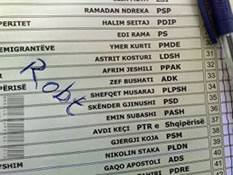 RAMADAN NDREKA PSP
PERITET HALIM SEITAJ PDIP
EDI RAMA PS
EMIGRANTËVE YMER KURTI PMDE
ASTRIT KOSTURI LDSH 31
AFRIM JESHILI PPAK 32
PËRISË ZEF BUSHATI ADK 33
SHEFQET MUSARAJ PLPSH 34
SKËNDER GJINUSHI PSD 35
EMIN SUBASHI PASH 36
AVDI KEÇI PTR e Shqipërisë 37
GJERGJI KOJA PSM 38
NIKOLIN STAKA PLDN 39
YSHIM GAQO APOSTOLI ADS
Robt